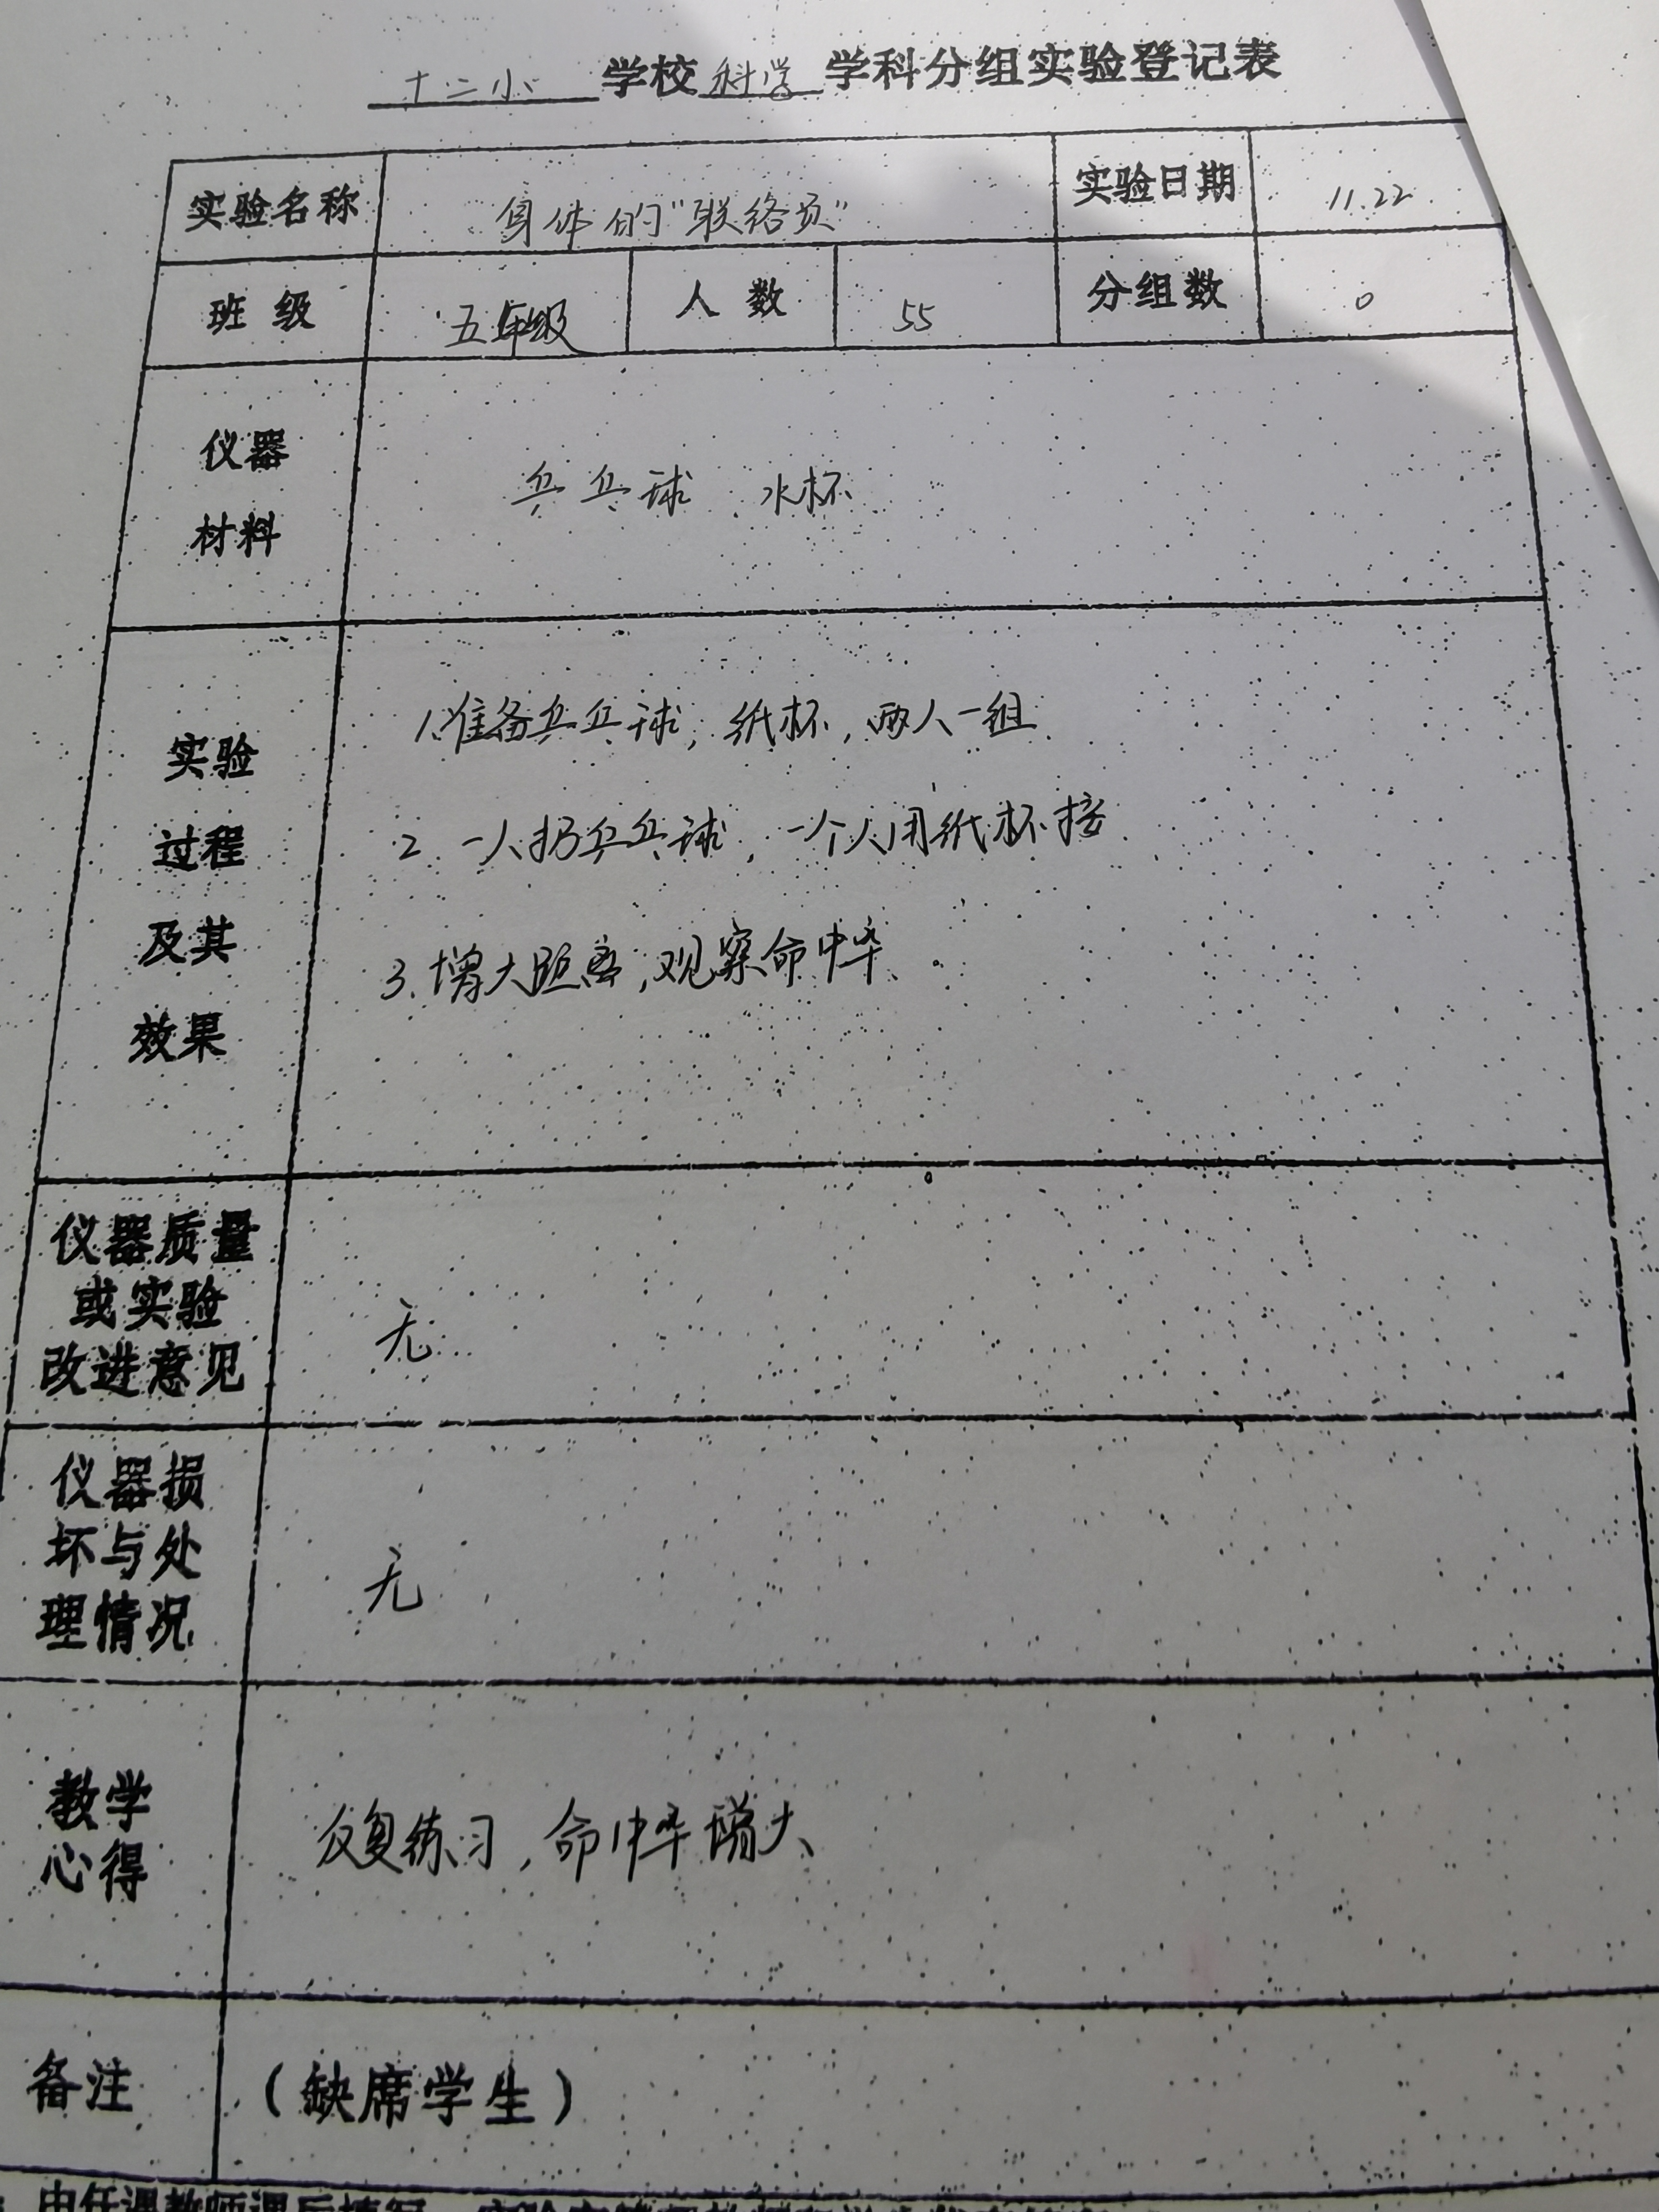 十二小 学校 科学 学科分组实验登记表
实验名称 身体的"联络员" 实验日期 11.22
班级 五年级 人数 55 分组数 0
仪器
材料
乒乓球 水杯
实验
过程
及其
效果
1.准备乒乓球,纸杯,两人一组
2.一人扔乒乓球,一个人用纸杯接
3.增大距离,观察命中率。
仪器质量
或实验
改进意见
无
仪器损
坏与处
理情况
无
教学
心得
反复练习,命中率增大
备注 (缺席学生)